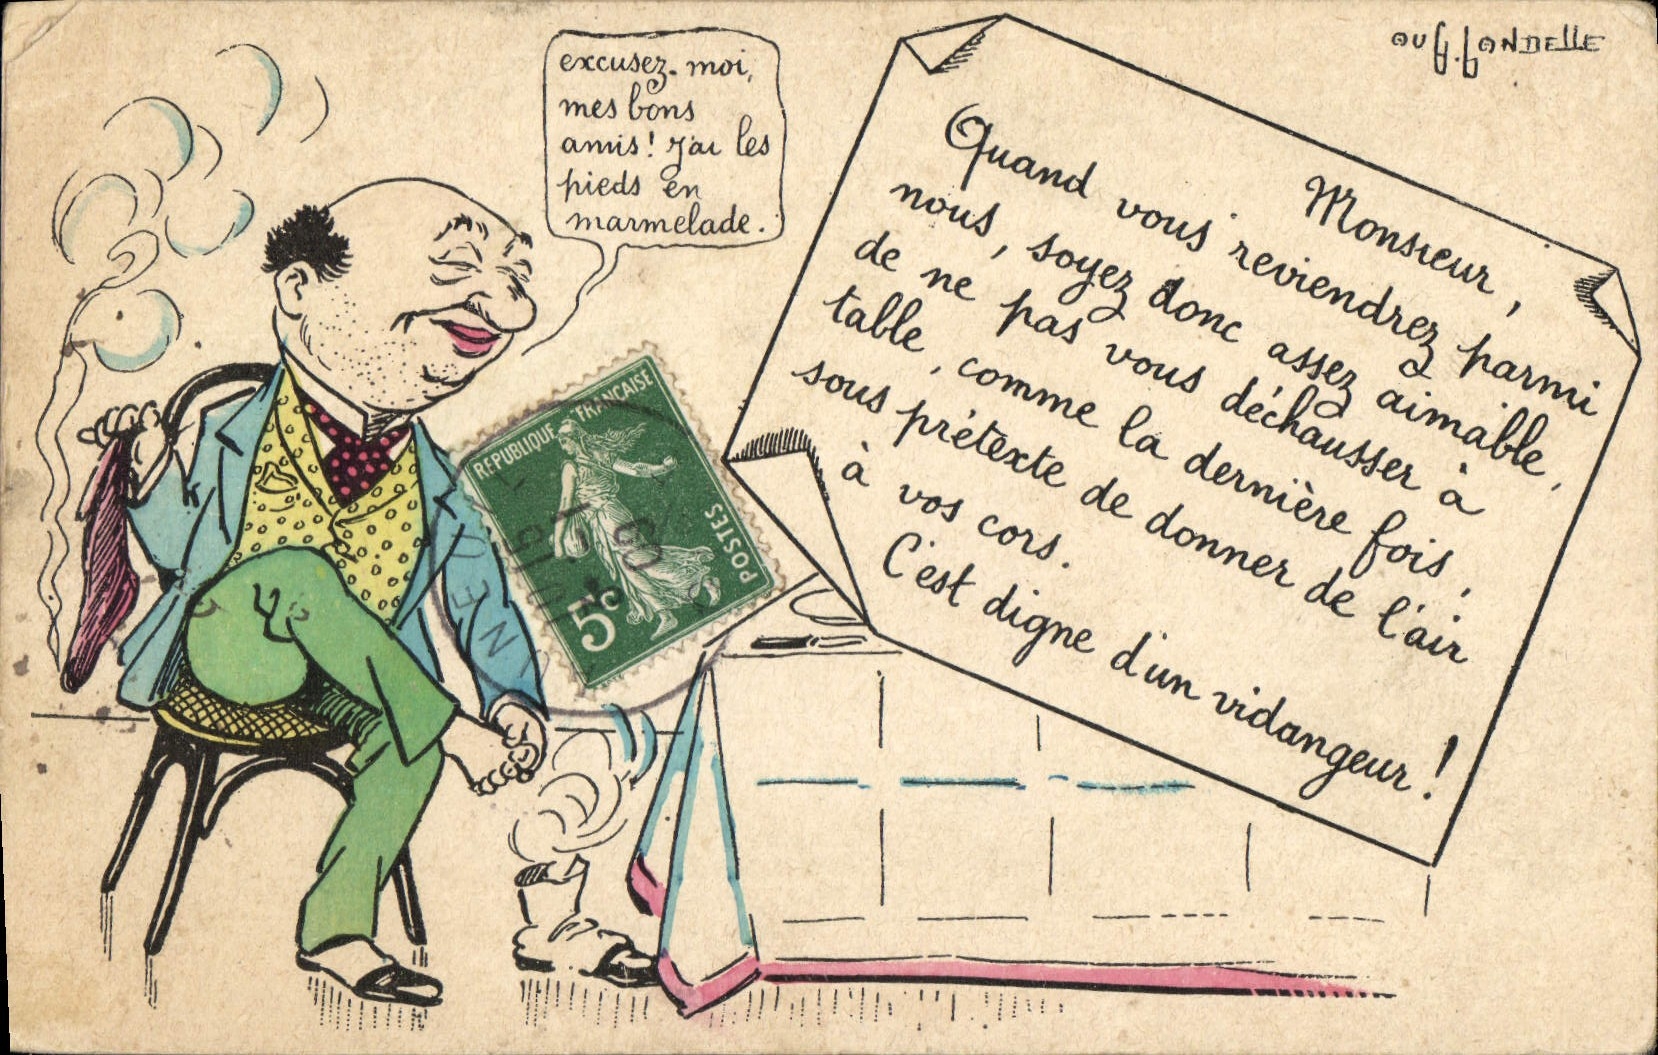 excusez-moi,
mes bons
amis! J'ai les
pieds en
marmelade.
AUG. LANDELLE
Monsieur,
Quand vous reviendrez parmi
nous, soyez donc assez aimable,
de ne pas vous déchausser à
table, comme la dernière fois,
sous prétexte de donner de l'air
à vos cors.
C'est digne d'un vidangeur!
RÉPUBLIQUE FRANÇAISE
POSTES
5c